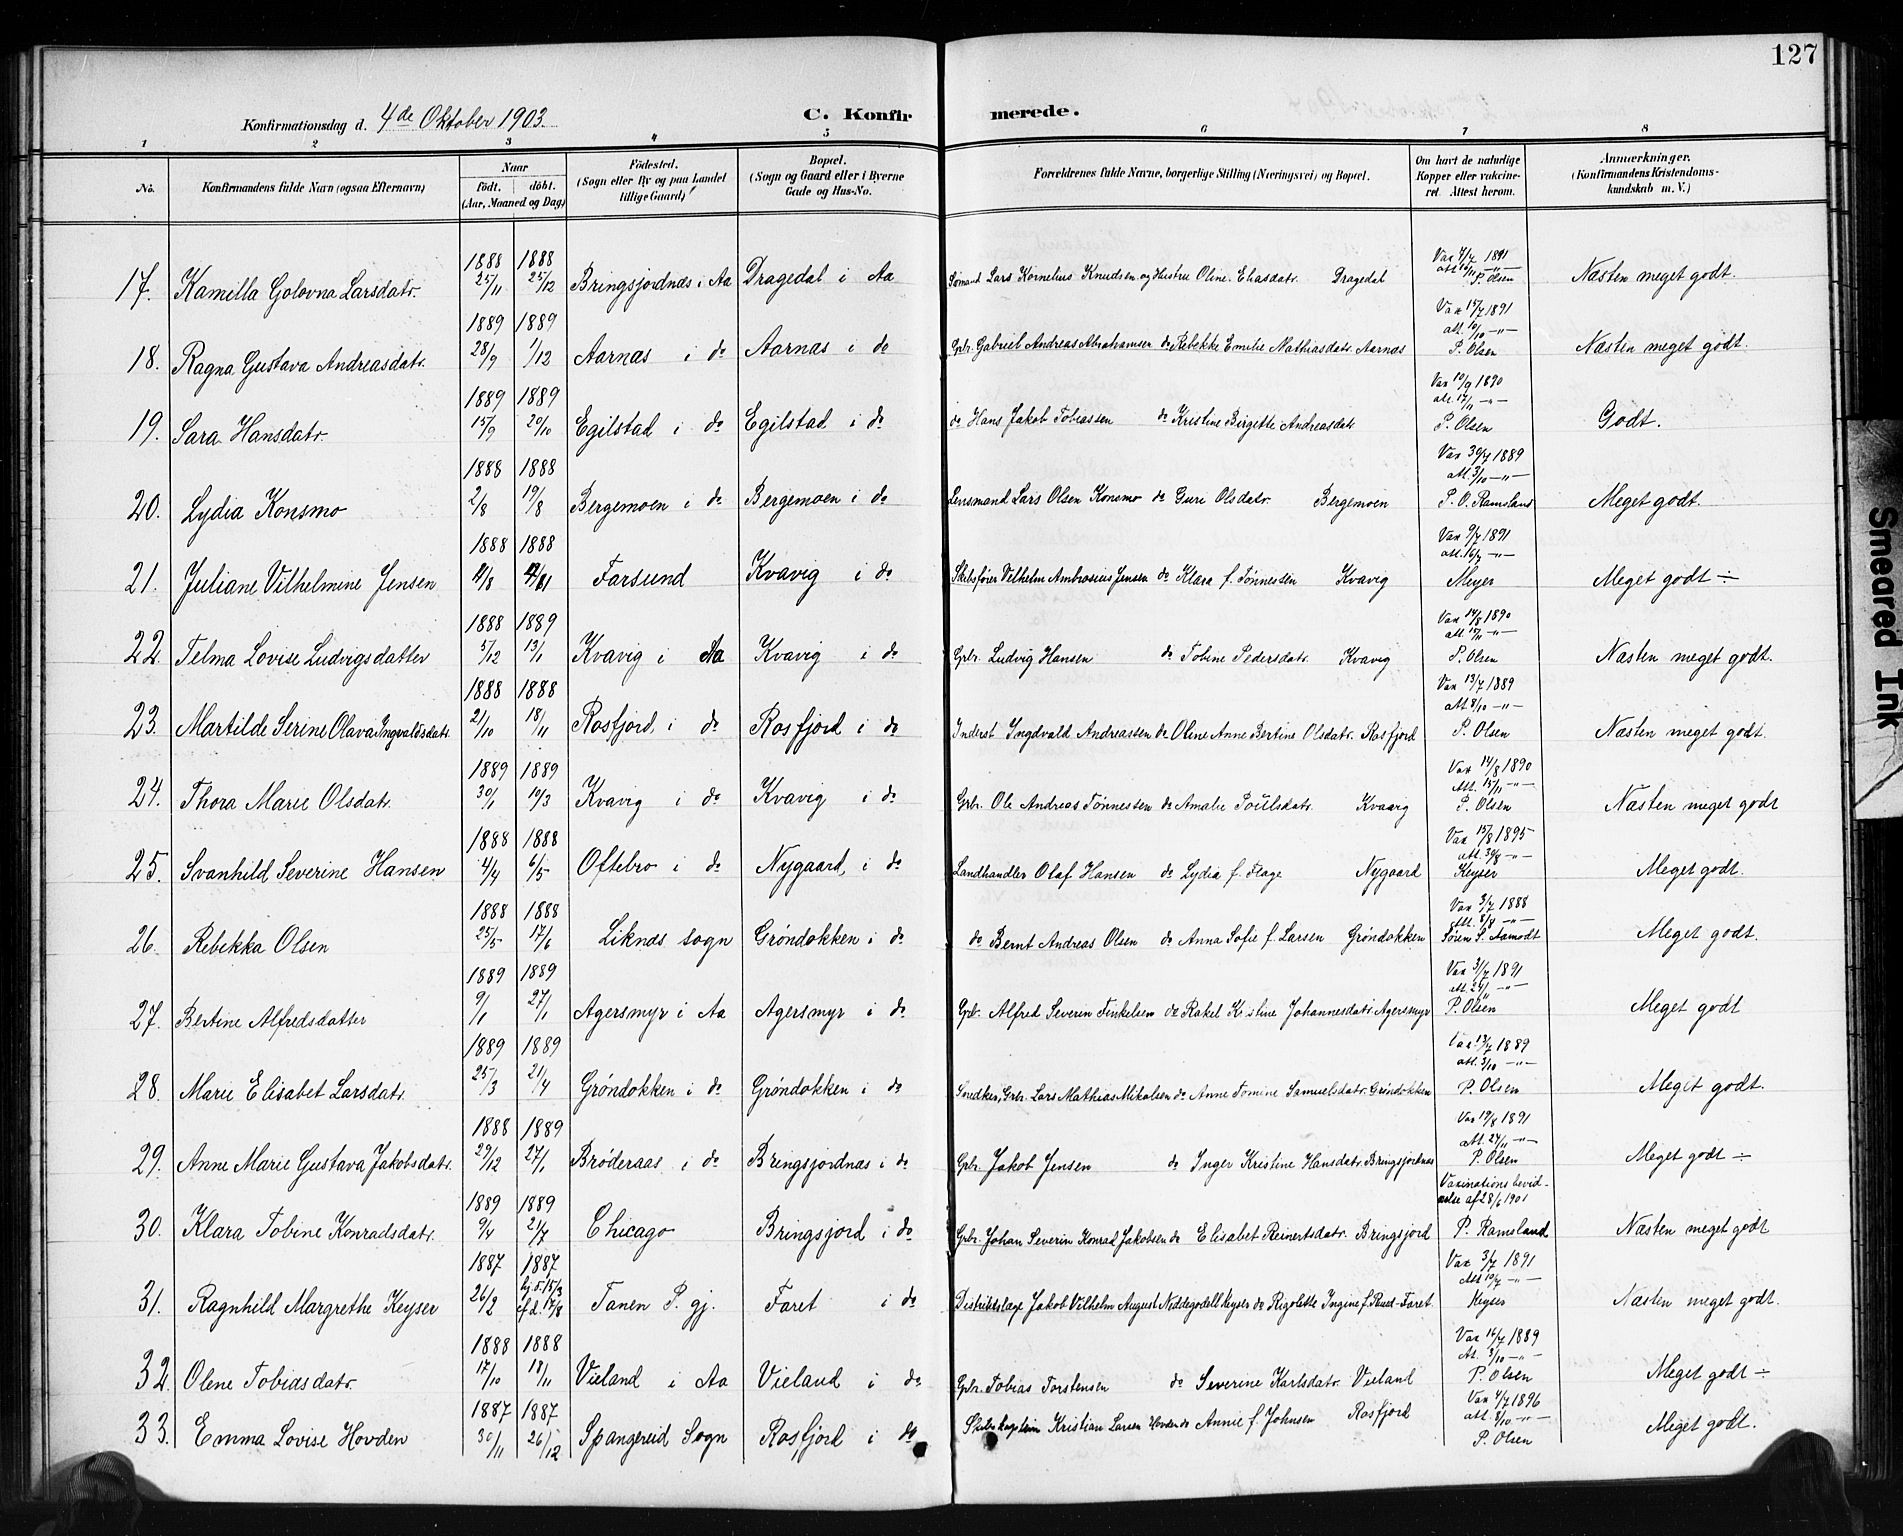 127
Konfirmationsdag d. 4de Oktober 1903. C. Konfir merede.
1 2 3 4 5 6 7 8
No. Konfirmandens fulde Navn (ogsaa Efternavn) Naar födt. döbt. (Aar, Maaned og Dag) Födested. (Sogn eller By og paa Landet tillige Gaard) Bopæl. (Sogn og Gaard eller i Byerne Gade og Hus-No. Forældrenes fulde Navne, borgerlige Stilling (Næringsvei) og Bopæl. Om havt de naturlige Kopper eller vakcineret. Attest herom. Anmærkninger. (Konfirmandens Kristendomskundskab m. V.)
17. Kamilla Golovna Larsdatr. 1888 25/11 1888 25/12 Bringsjordnæs i Aa Dragedal i Aa Sømand Lars Kornelius Knudsen og Hustru Oline Eliasdatr. Dragedal 1891 P. Olsen Næsten meget godt.
18. Ragna Gustava Andreasdatr. 1889 28/9 1889 1/12 Aarnæs i do Aarnæs i do Gbr. Gabriel Andreas Abrahamsen do Rebekke Emilie Mathiasdatr. Aarnæs Vax 15/7 1891 att. 10/10 -"- P. Olsen Næsten meget godt.
19. Sara Hansdatr. 1889 15/9 1889 20/10 Egilstad i do Egilstad i do do Hans Jakob Tobiassen do Kristine Birgette Andreasdatr Vax 10/9 1890 att. 17/11 -"- P. Olsen Godt.
20. Lydia Konsmo 1888 2/8 1888 19/8 Bergemoen i do Bergemoen i do Lensmand Lars Olsen Konsmo do Guri Olsdatr. Bergemoen Vax 30/7 1889 Att. 3/10 -"- P. O. Ramsland Meget godt.
21. Juliane Vilhelmine Jensen 1888 4/8 1888 Farsund Kvavig i do Skibsfører Vilhelm Ambrosius Jensen do Klara f. Tønnesen Kvavig Vax 9/7 1891 att. 16/7 -"- Meyer Meget godt ÷
22. Telma Lovise Ludvigsdatter 1888 5/12 1889 13/1 Kvavig i Aa Kvavig i do Gbr. Ludvig Hansen do Tobine Pedersdatr. Kvavig Vax 14/8 1890 att. 15/11 -"- P. Olsen Næsten meget godt.
23. Martilde Serine Olava Ingvaldsdatr. 1888 21/10 1888 18/11 Rosfjord i do Rosfjord i do Inderst Ingdvald Andreassen do Oline Anne Bertine Olsdatr. Rosfjord Vax 13/7 1889 Att. 8/10 -"- P. Olsen Næsten meget godt.
24. Thora Marie Olsdatr. 1889 30/1 1889 10/3 Kvavig i do Kvavig i do Gbr. Ole Andreas Tønnessen do Amalie Poulsdatr. Kvavig Vax 14/8 1890 Att. 15/11 -"- P. Olsen Næsten meget godt
25. Svanhild Severine Hansen 1888 4/4 1888 6/5 Oftebro i do Nygaard, i do Landhandler Olaf Hansen do Lydia f. Flage Nygaard Vax 15/8 1895 att. 30/8 -"- Keyser Meget godt.
26. Rebekka Olsen 1888 25/5 1888 17/6 Liknæs sogn Gröndokken i do do Bernt Andreas Olsen do Anna Sofie f. Larsen Gröndokken Vax 3/7 1888 Att. 8/9 -"- Søren S. Aamodt Meget godt.
27. Bertine Alfredsdatter 1889 9/1 1889 27/1 Agersmyr i Aa Agersmyr i do Gbr. Alfred Severin Finkelsen do Rakel Kristine Johannesdatr. Agersmyr Vax 3/7 1891 P. Olsen Meget godt
28. Marie Elisabet Larsdatr. 1889 25/3 1889 21/4 Gröndokken i do Gröndokken i do Snedker, Gbr. Lars Mathias Mikalsen do Anne Tomine Samuelsdatr. Gröndokken Vax 13/7 1889 att. 3/10 -"- P. Olsen Meget godt.
29. Anne Marie Gustava Jakobsdatr. 1888 29/12 1889 27/1 Bröderaas i do Bringsjordnæs i do Gbr. Jakob Jensen do Inger Kristine Hansdatr. Bringsjordnæs Vax 19/8 1891 att. 24/11 -"- P. Olsen Meget godt ÷
30. Klara Tobine Konradsdatr. 1889 9/4 1889 21/7 Chicago Bringsjord i do Gbr. Johan Severin Konrad Jakobsen do Elisabet Reinertsdatr. Bringsjord Vaxinations bevidnelse af 28/6 1901 P. Ramsland Næsten meget godt
31. Ragnhild Margrethe Keyser 1887 26/2 1887 hj. d. 15/3 ef. d. 17/8 Tanen P. gj. Faret i do Distriktslæge Jakob Vilhelm August Keyser do Rigolette Ingine f. Ruud - Faret. Vax 3/7 1891 Att 10/7 -"- Keyser Næsten meget godt.
32. Olene Tobiasdatr. 1888 17/10 1888 18/11 Vieland i Aa Vieland i do Gbr. Tobias Torstensen do Severine Karlsdatr. Vieland Vax 16/7 1889 At. 3/10 -"- P. Olsen Meget godt ÷
33. Emma Lovise Hovden 1887 30/11 1887 26/12 Spangereid Sogn Rosfjord i do Skibskaptein Kristian Larsen Hovden do Annie f. Johnsen Rosfjord Vax 4/7 1896 att. 8/10 -"- P. Olsen Meget godt.
Smeared Ink